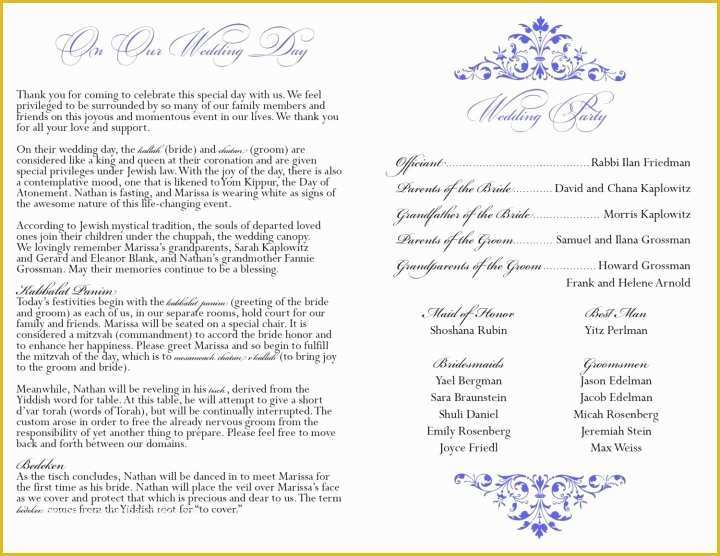 On Our Wedding Day
Thank you for coming to celebrate this special day with us. We feel
privileged to be surrounded by so many of our family members and
friends on this joyous and momentous event in our lives. We thank you
for all your love and support.
On their wedding day, the kallah (bride) and chatan (groom) are
considered like a king and queen at their coronation and are given
special privileges under Jewish law. With the joy of the day, there is also
a contemplative mood, one that is likened to Yom Kippur, the Day of
Atonement. Nathan is fasting, and Marissa is wearing white as signs of
the awesome nature of this life-changing event.
According to Jewish mystical tradition, the souls of departed loved
ones join their children under the chuppah, the wedding canopy.
We lovingly remember Marissa's grandparents, Sarah Kaplowitz
and Gerard and Eleanor Blank, and Nathan's grandmother Fannie
Grossman. May their memories continue to be a blessing.
Kabbalat Panim
Today's festivities begin with the kabbalat panim (greeting of the bride
and groom) as each of us, in our separate rooms, hold court for our
family and friends. Marissa will be seated on a special chair. It is
considered a mitzvah (commandment) to accord the bride honor and
to enhance her happiness. Please greet Marissa and so begin to fulfill
the mitzvah of the day, which is to mesameach chatan v'kallah (to bring joy
to the groom and bride).
Meanwhile, Nathan will be reveling in his tisch, derived from the
Yiddish word for table. At this table, he will attempt to give a short
d'var torah (words of Torah), but will be continually interrupted. The
custom arose in order to free the already nervous groom from the
responsibility of yet another thing to prepare. Please feel free to move
back and forth between our domains.
Bedeken
As the tisch concludes, Nathan will be danced in to meet Marissa for
the first time as his bride. Nathan will place the veil over Marissa's face
as we cover and protect that which is precious and dear to us. The term
bedeken comes from the Yiddish root for "to cover."
Wedding Party
Officiant Rabbi Ilan Friedman
Parents of the Bride David and Chana Kaplowitz
Grandfather of the Bride Morris Kaplowitz
Parents of the Groom Samuel and Ilana Grossman
Grandparents of the Groom Howard Grossman
Frank and Helene Arnold
Maid of Honor
Shoshana Rubin
Best Man
Yitz Perlman
Bridesmaids
Yael Bergman
Sara Braunstein
Shuli Daniel
Emily Rosenberg
Joyce Friedl
Groomsmen
Jason Edelman
Jacob Edelman
Micah Rosenberg
Jeremiah Stein
Max Weiss